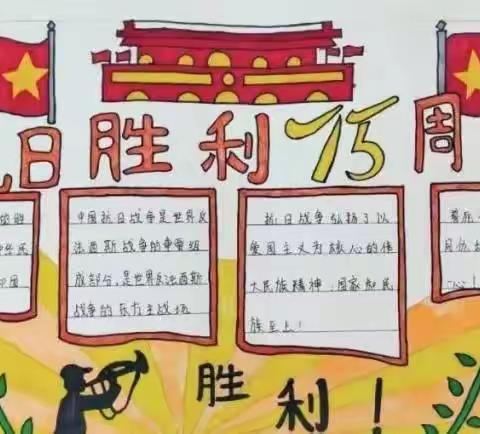 日胜利75周
中国抗日战争是世界反
法西斯战争的重要组
成部分,是世界反法西斯
战争的东方主战场
抗日战争弘扬了以
爱国主义为核心的伟
大民族精神:国家和民
族至上!
心!
胜利!